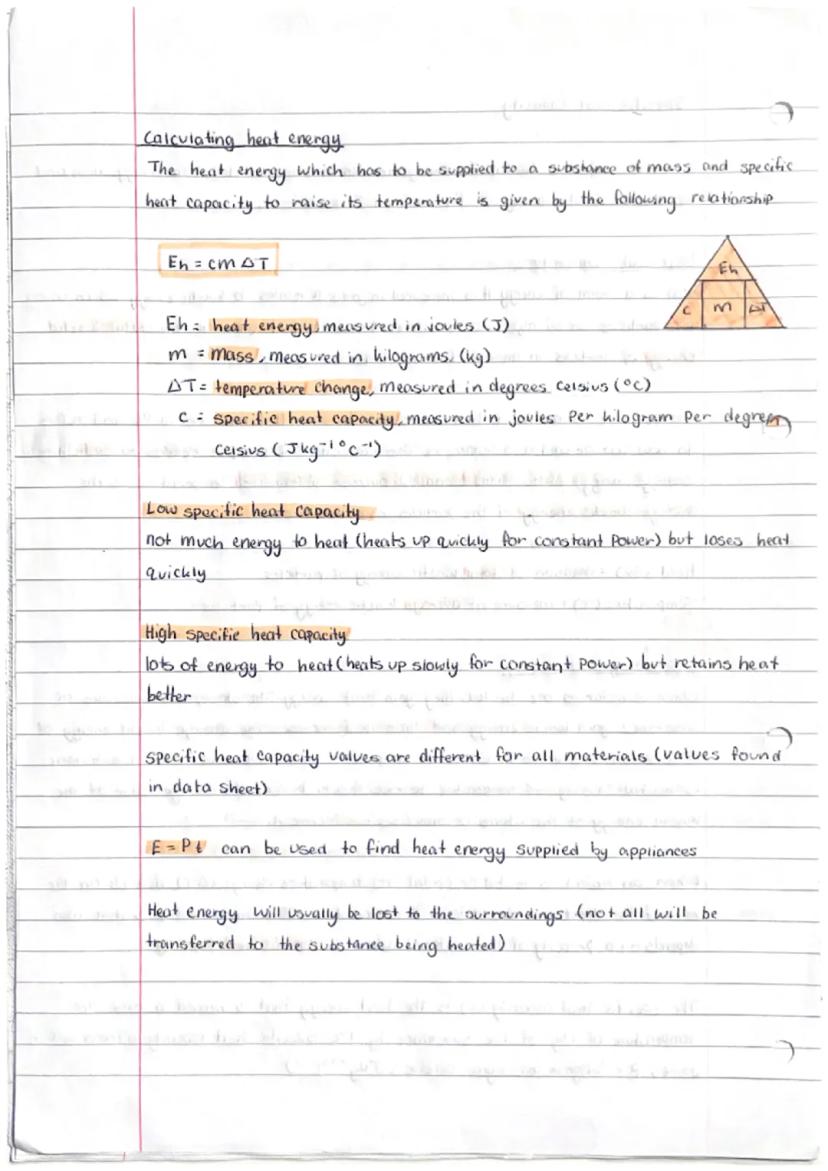 Calculating heat energy
The heat energy which has to be supplied to a substance of mass and specific
heat capacity to raise its temperature is given by the following relationship
Eh = cm ΔT
Eh
c m ΔT
Eh = heat energy, measured in joules (J)
m = mass, measured in kilograms (kg)
ΔT = temperature change, measured in degrees Celsius (°C)
c = specific heat capacity, measured in joules Per kilogram Per degree
Celsius (J kg⁻¹ °C⁻¹)
Low specific heat capacity
not much energy to heat (heats up quickly for constant power) but loses heat
quickly
High specific heat capacity
lots of energy to heat (heats up slowly for constant power) but retains heat
better
specific heat capacity values are different for all materials (values found
in data sheet)
E = Pt can be used to find heat energy supplied by appliances
Heat energy will usually be lost to the surroundings (not all will be
transferred to the substance being heated)